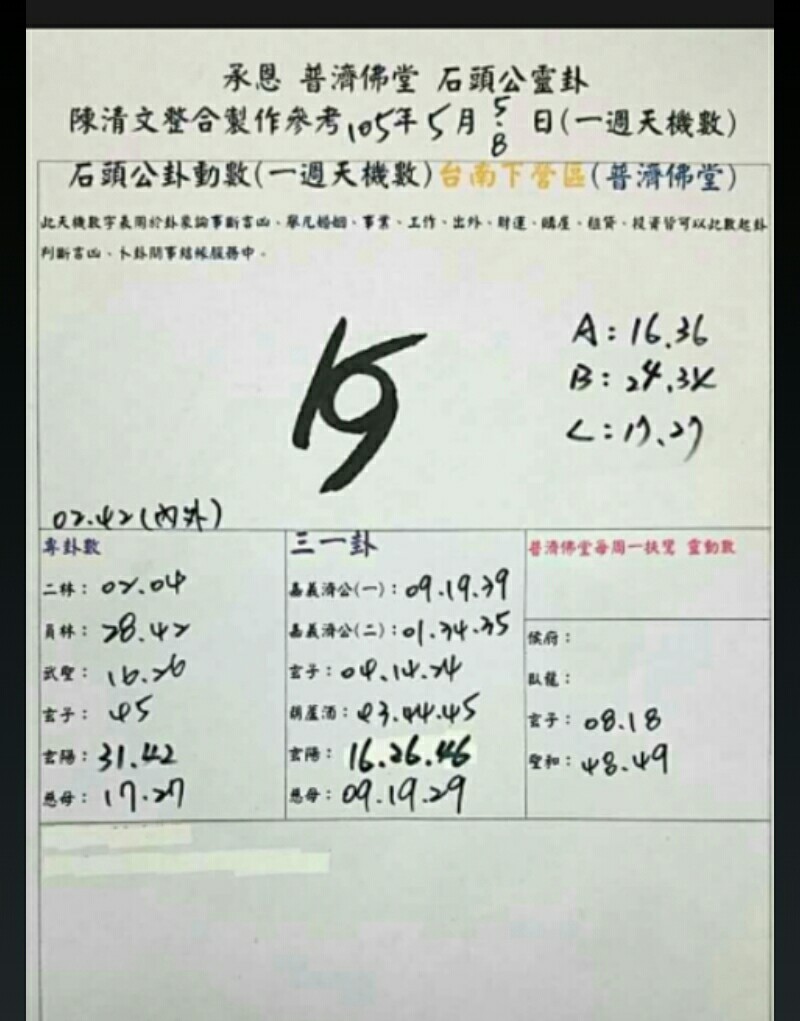 承恩 普濟佛堂 石頭公靈卦
陳清文整合製作參考105年5月5-8日(一週天機數)
石頭公卦動數(一週天機數)台南下營區(普濟佛堂)
此天機數字義用於卦象論事斷吉凶、舉凡婚姻、事業、工作、出外、財運、購屋、租賃、投資皆可以此數起卦
判斷吉凶、卜卦問事結帳服務中。
A:16.36
B:24.34
C:17.27
02.42(內外)
專卦數
二林:02.04
員林:28.42
武聖:16.26
玄子:45
玄陽:31.42
慈母:17.27
三一卦
嘉義濟公(一):09.19.39
嘉義濟公(二):01.34.35
玄子:04.14.24
葫蘆酒:43.44.45
玄陽:16.26.46
慈母:09.19.29
普濟佛堂每周一扶鸞 靈動數
侯府:
臥龍:
玄子:08.18
聖和:48.49